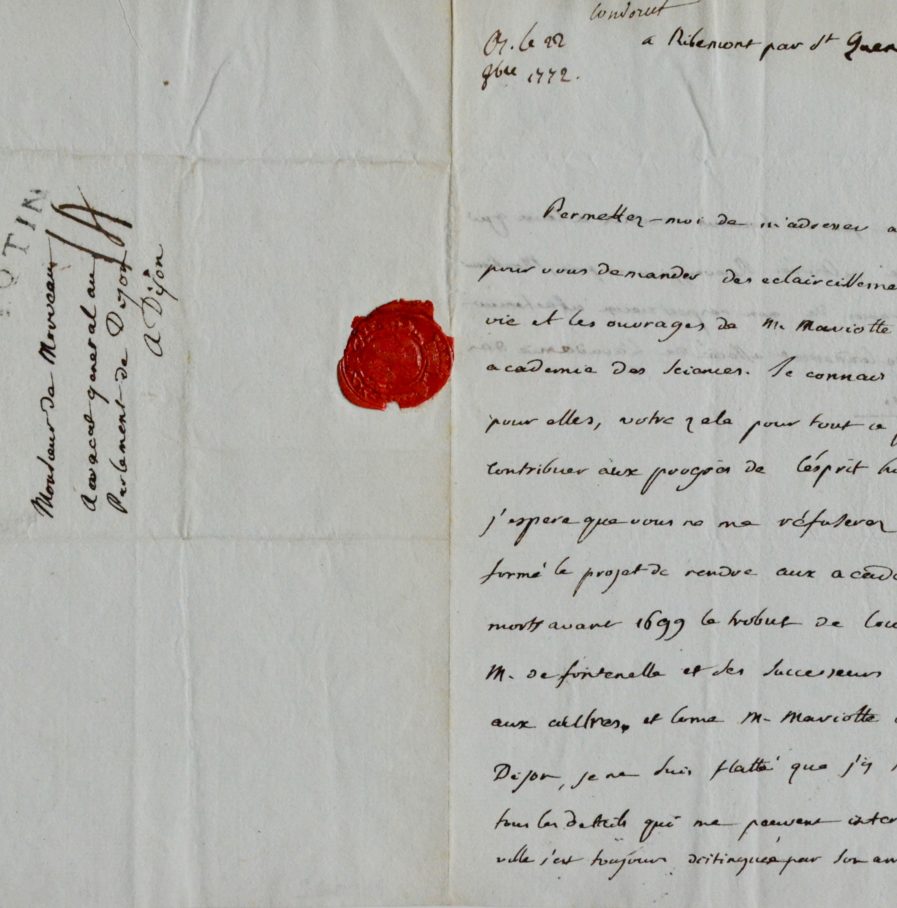 OTIN
Monsieur de Morveau
Avocat general au
Parlement de Dijon
A Dijon
Condorcet
le 22
9bre 1772.
a Ribemont par St Quen
Permettez-moi de m'adresser a
pour vous demander des eclaircisseme
vie et les ouvrages de M. Mariotte
academie des sciences. Je connais
pour elles, votre zele pour tout ce
contribuer aux progrès de l'ésprit hu
j'espere que vous ne me réfuserez
formé le projet de rendre aux acade
morts avant 1699 le tribut de lou
M. de fontenelle et ses successeurs
aux autres, et come M. Mariotte
Dijon, je me suis flatté que j'y
tous les détails qui me peuvent inter
ville s'est toujours distinguée par son am